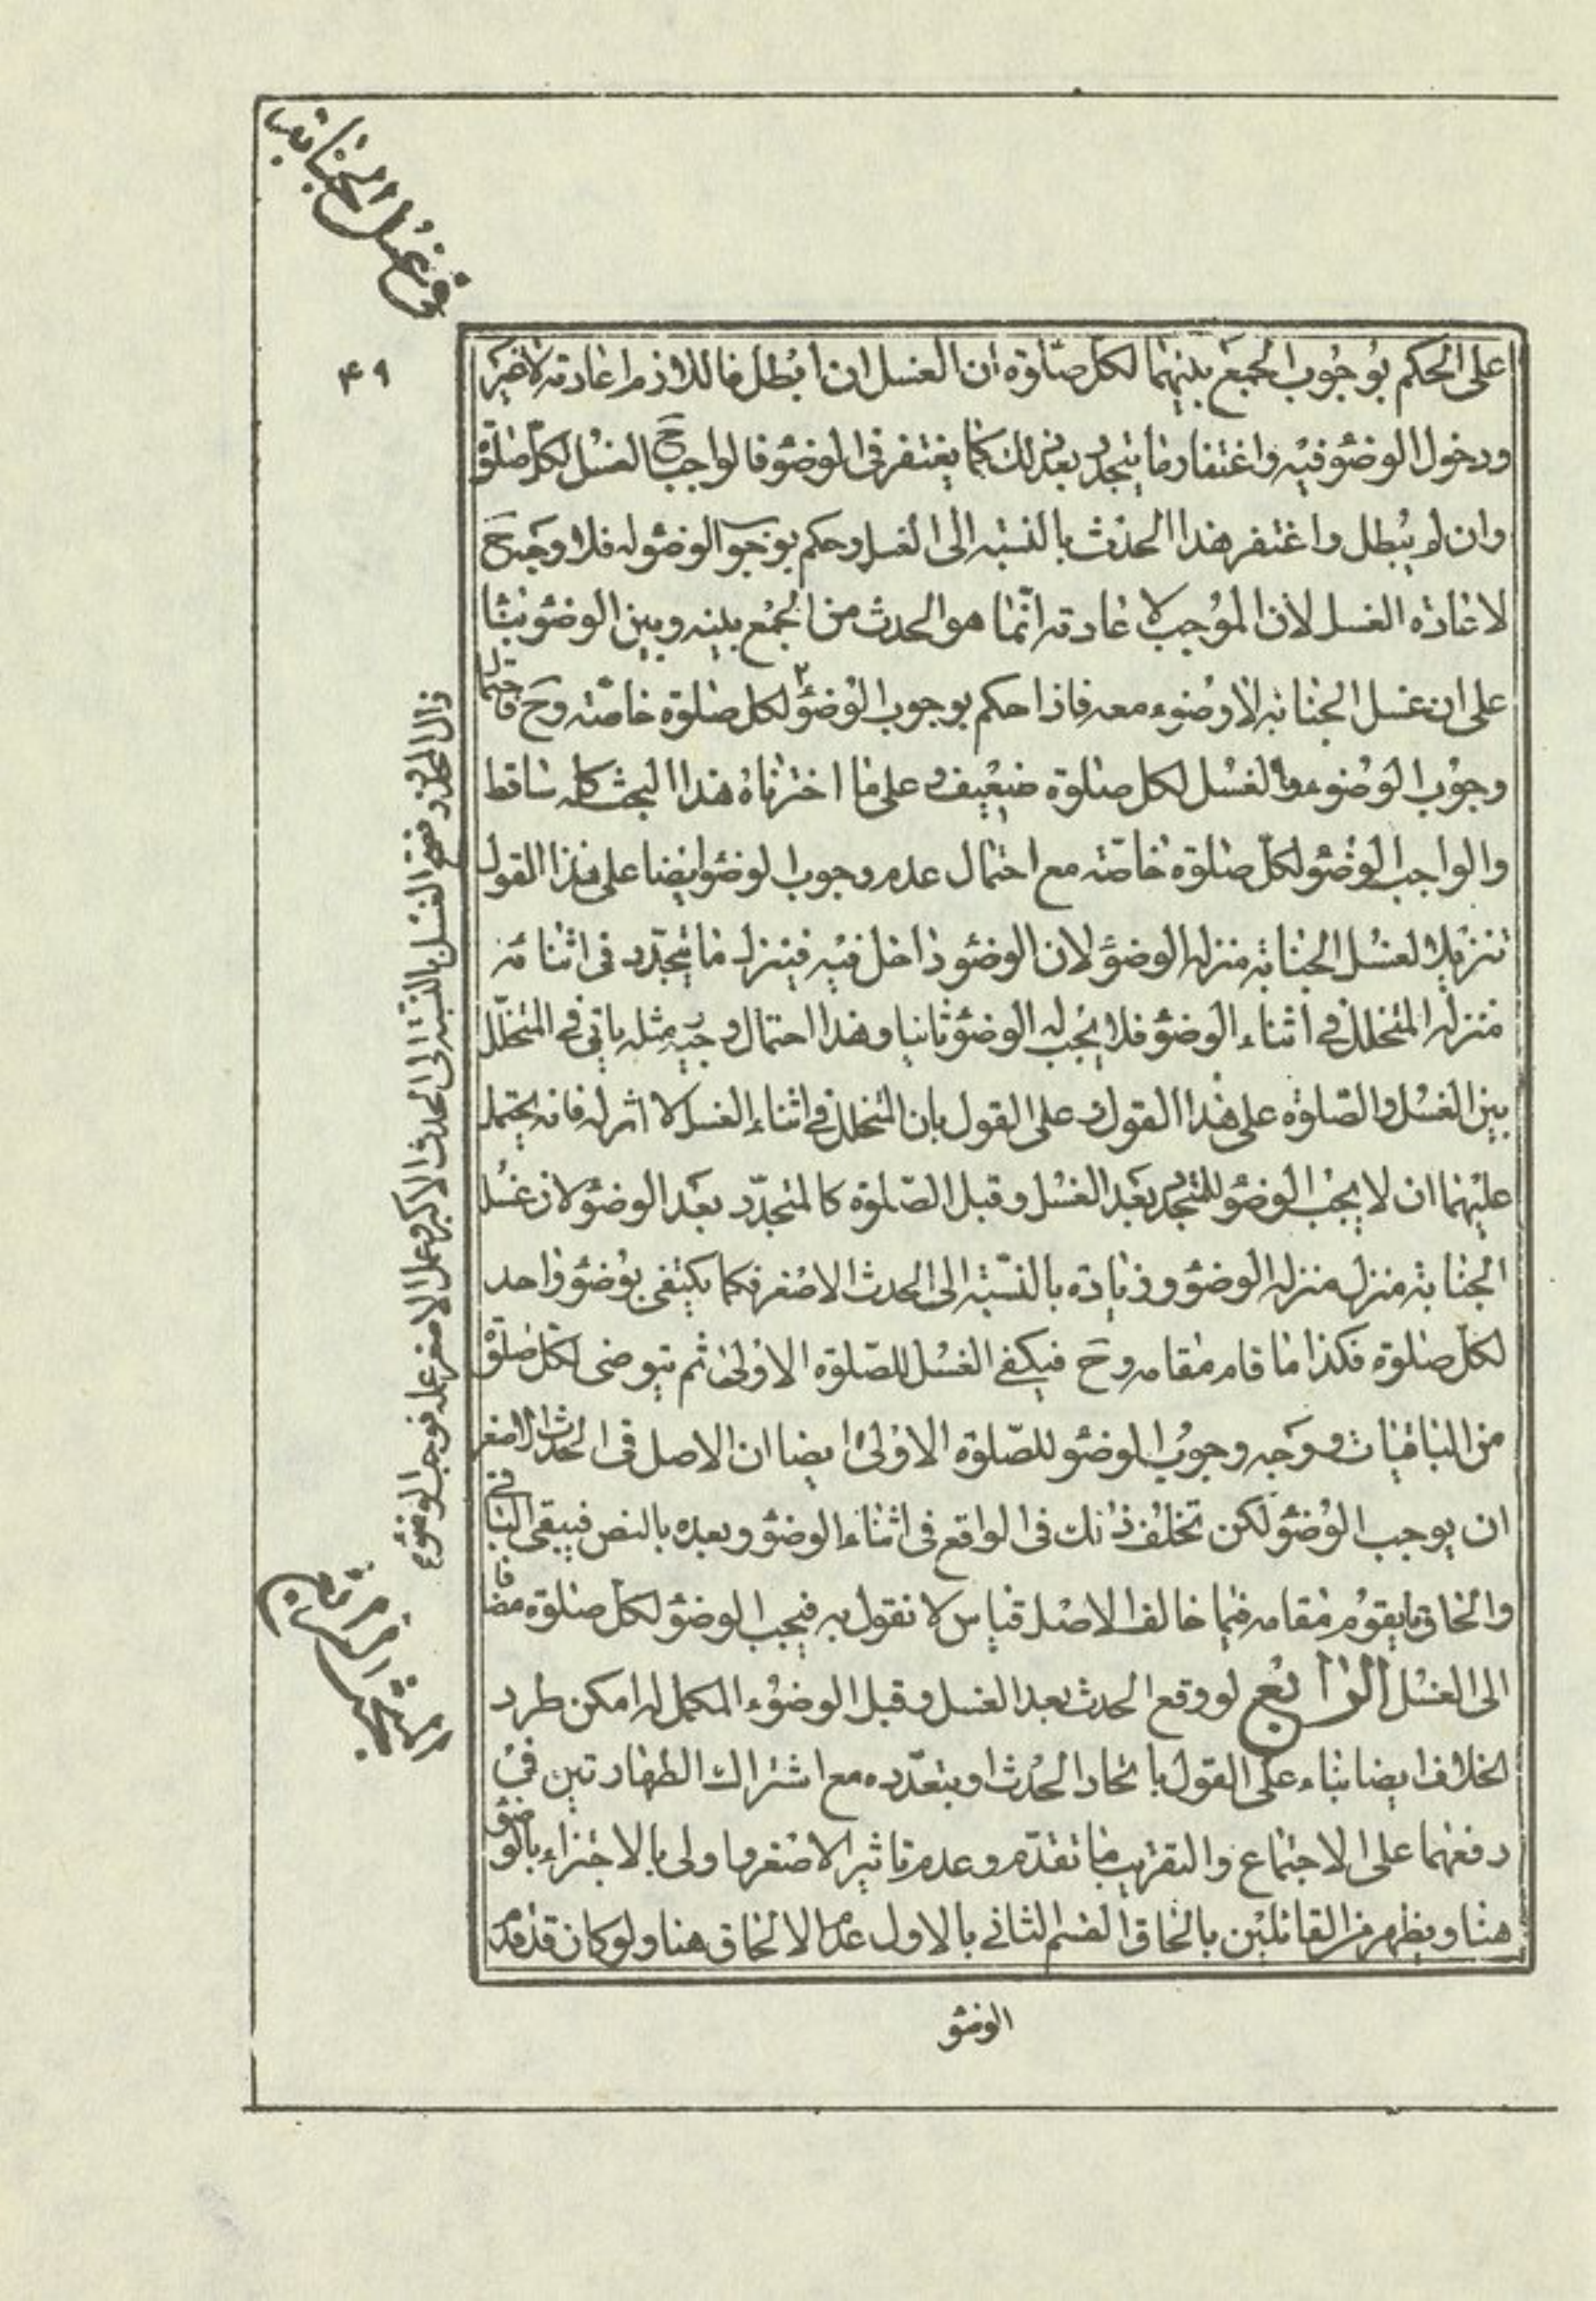 في غسل الجنابة
۴۹
على الحكم بوجوب الجمع بينهما لكل صلوة ان الغسل ان ابطل فاللازم اعادته لا غير
ودخول الوضوء فيه واغتفار ما يتجدد بعد ذلك كما يغتفر في الوضوء فالواجب ح الغسل لكل صلوة
وان لم يبطل واغتفر هذا الحدث بالنسبة الى الغسل وحكم بوجوب الوضوء له فلا وجه ح
لاعادة الغسل لان الموجب لاعادته انما هو الحدث من الجمع بينه وبين الوضوء بناء
على ان غسل الجنابة لا وضوء معه فاذا حكم بوجوب الوضوء لكل صلوة خاصة وح فاحتمال
وجوب الوضوء والغسل لكل صلوة ضعيف وعلى ما اخترناه هذا البحث كله ساقط
والواجب الوضوء لكل صلوة خاصة مع احتمال عدم وجوب الوضوء ايضا على هذا القول
تنزيلا لغسل الجنابة منزلة الوضوء لان الوضوء داخل فيه فينزل ما يتجدد في اثنائه
منزلة المتخلل في اثناء الوضوء فلا يجب له الوضوء ثانيا وهذا احتمال وجيه مثله ياتي في المتخلل
بين الغسل والصلوة على هذا القول وعلى القول بان المتخلل في اثناء الغسل لا اثر له فانه يحتمل
عليهما ان لا يجب الوضوء للمتجدد بعد الغسل وقبل الصلوة كالمتجدد بعد الوضوء لان غسل
الجنابة منزل منزلة الوضوء وزيادة بالنسبة الى الحدث الاصغر فكما يكتفى بوضوء واحد
لكل صلوة فكذا ما قام مقامه وح فيكفي الغسل للصلوة الاولى ثم يتوضى لكل صلوة
من الباقيات ووجه وجوب الوضوء للصلوة الاولى ايضا ان الاصل في الحدث الاصغر
ان يوجب الوضوء لكن تخلف ذلك في الواقع في اثناء الوضوء وبعده بالنص فيبقى الباقي
والحاق ما يقوم مقامه فيما خالف الاصل قياس لا نقول به فيجب الوضوء لكل صلوة مضافا
الى الغسل الرابع لو وقع الحدث بعد الغسل وقبل الوضوء المكمل له امكن طرد
الخلاف ايضا بناء على القول باتحاد الحدث او بتعدده مع اشتراك الطهارتين في
دفعهما على الاجتماع والتقريب ما تقدم وعدم تاثير الاصغر واولى بالاجتزاء بالوضوء
هنا ويظهر من القائلين بالحاق القسم الثاني بالاول عدم الالحاق هنا ولو كان قد قدم
الوضوء